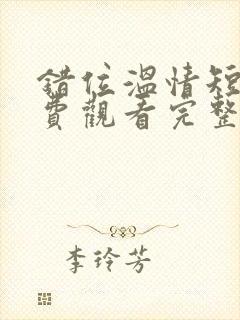 錯位溫情短
費觀看完整
李玲芳